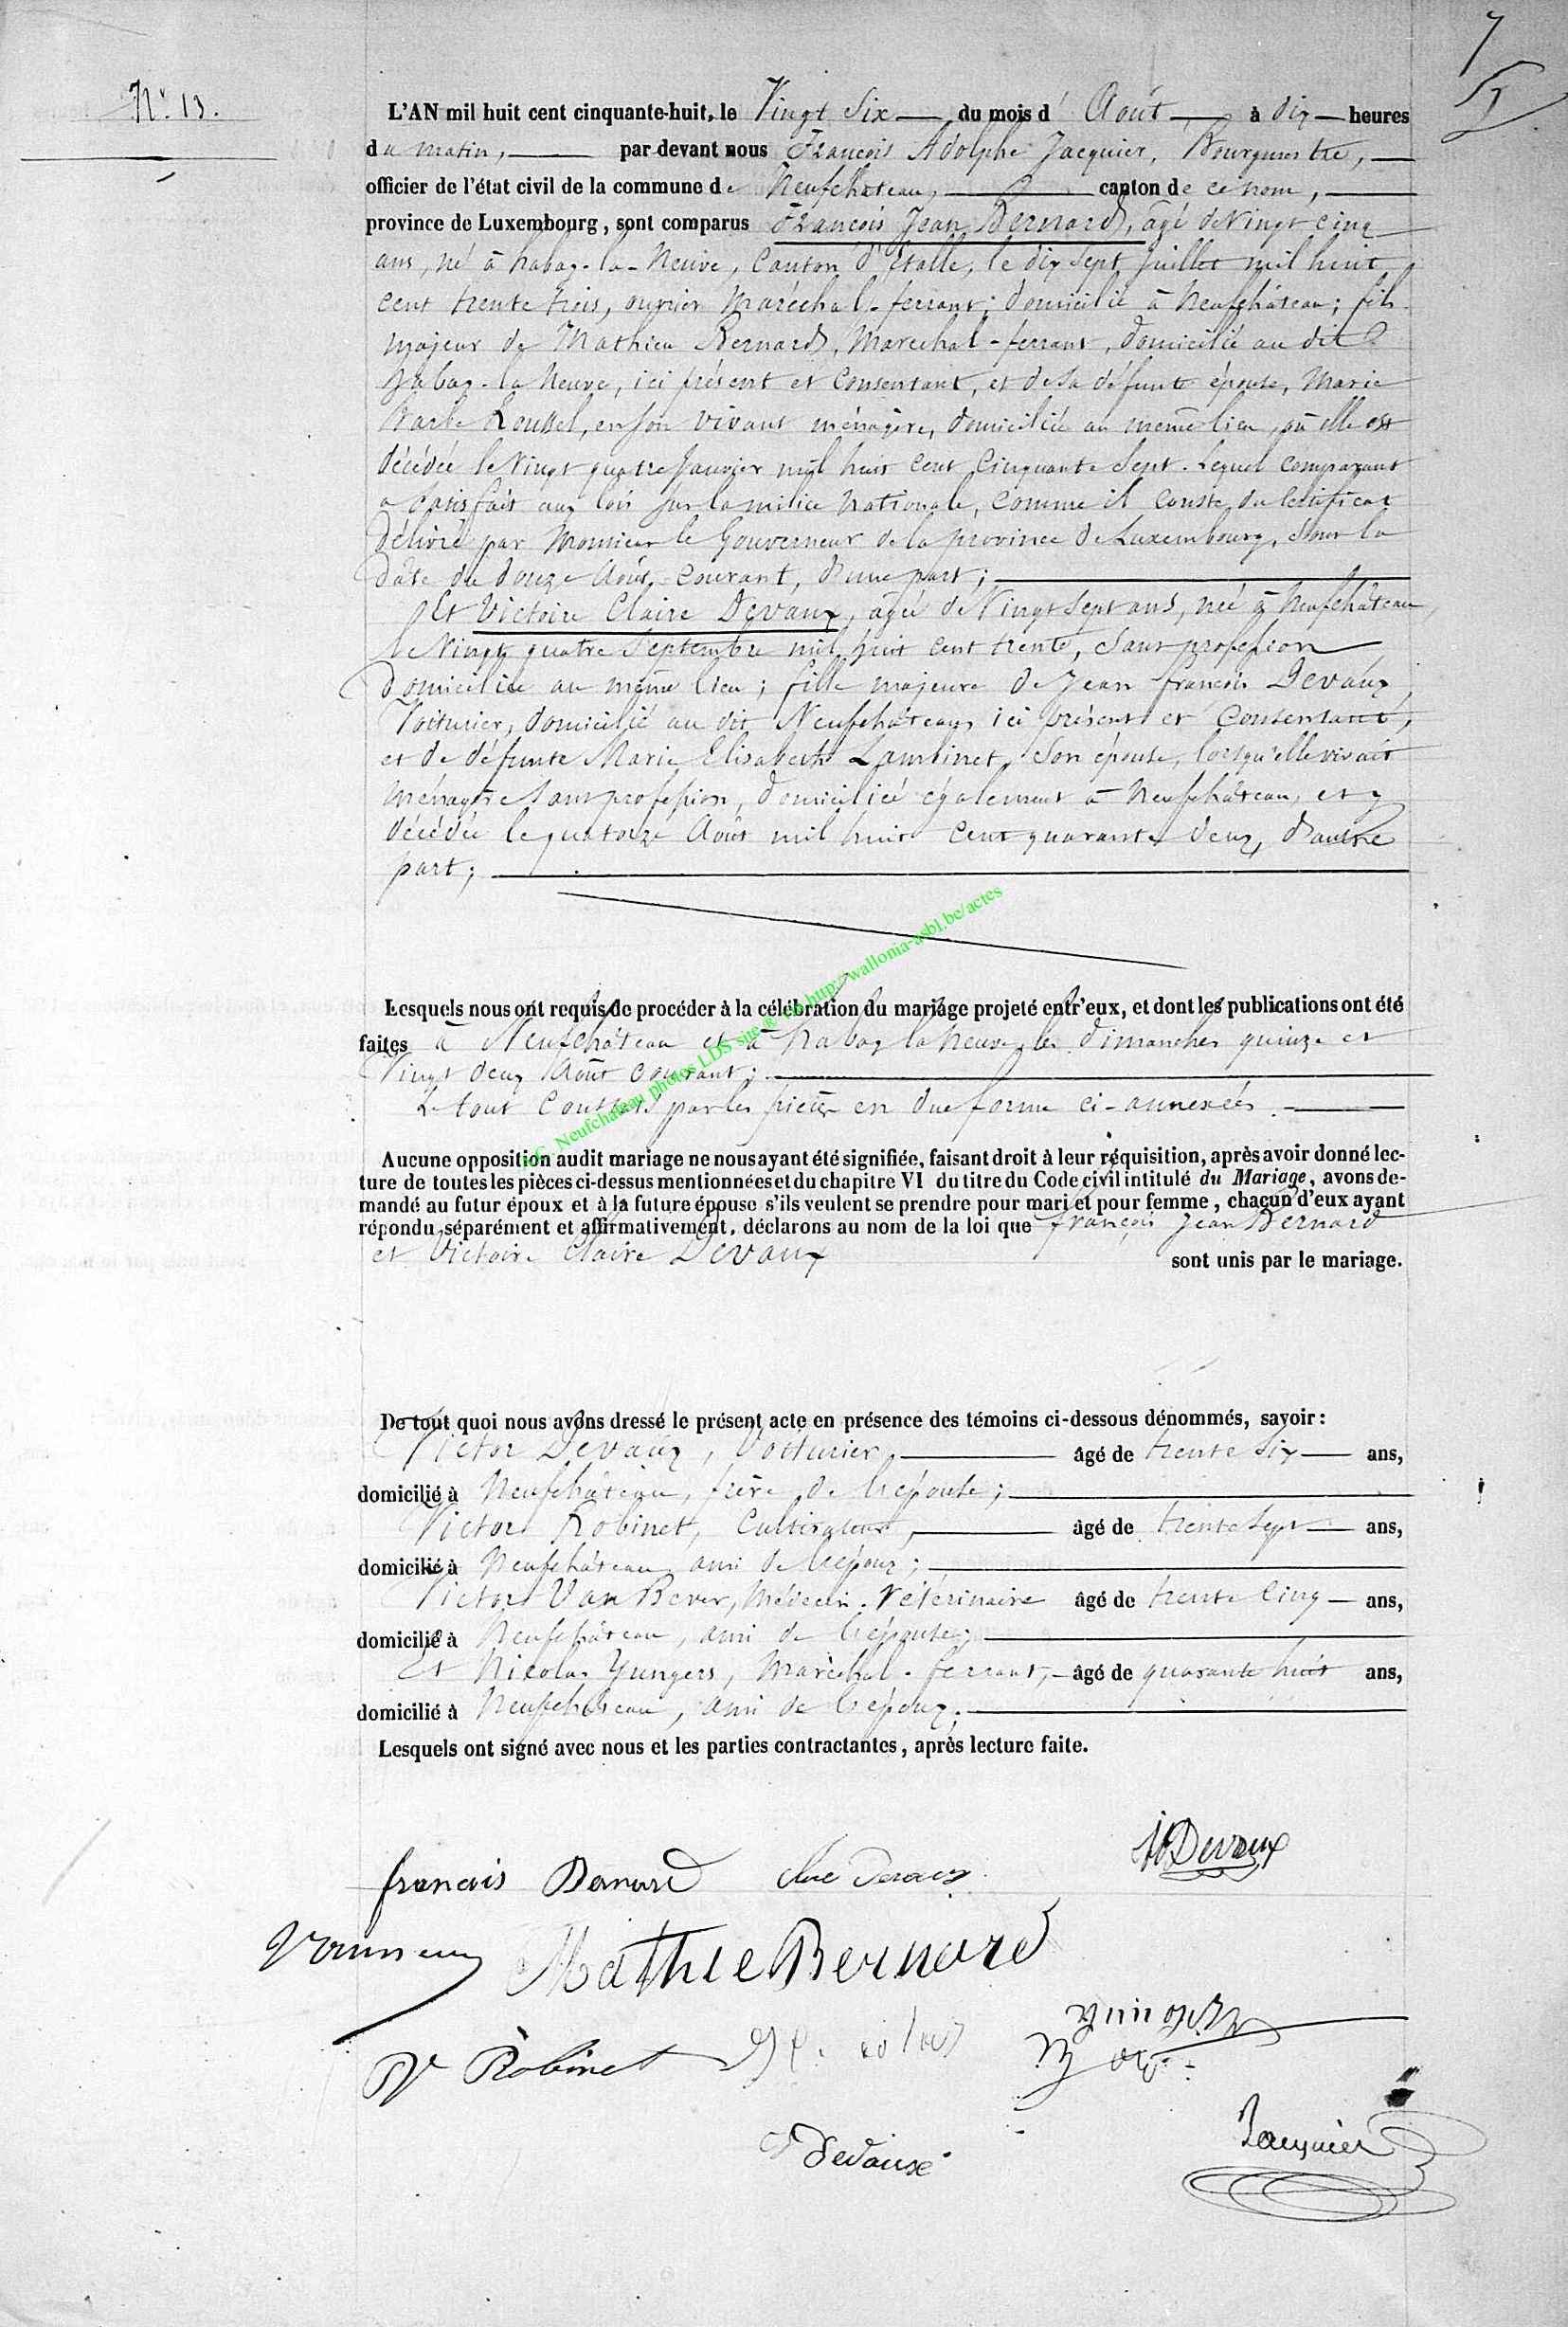 7
N° 13.
L'AN mil huit cent cinquante-huit, le Vingt Six du mois d' Août à dix heures
du matin, par-devant nous François Adolphe Jacquier, Bourgmestre,
officier de l'état civil de la commune de Neufchâteau, canton de ce nom,
province de Luxembourg, sont comparus François Jean Bernard, âgé de Vingt cinq
ans, né à habay-la-Neuve, Canton d'Etalle, le dix Sept Juillet mil huit
cent trente trois, ouvrier Maréchal-ferrant; domicilié à Neufchâteau; fils
majeur de Mathieu Bernard, Marechal-ferrant, domicilié au dit
habay-la Neuve, ici présent et Consentant, et de sa défunte épouse, Marie
Barbe Roussel, en son vivant ménagère, domiciliée au même lieu, où elle est
décédée le Vingt quatre Janvier mil huit cent Cinquante Sept. Lequel comparant
a Satisfait aux lois sur la milice Nationale, comme il conste du Certificat
délivré par Monsieur le Gouverneur de la province de Luxembourg, Sous la
date du douze Août, courant, d'une part;
Et Victoire Claire Devaux, âgée de Vingt Sept ans, née à Neufchâteau
le Vingt quatre Septembre mil huit cent trente, Sans profession
domiciliée au même lieu; fille majeure de Jean françois Devaux,
Voiturier, domicilié au dit Neufchâteau, ici présent et Consentant,
et de défunte Marie Elisabeth Lambinet, Son épouse, lorsqu'elle vivait
ménagère Sans profession, domiciliée également à Neufchâteau, et y
décédée le quatorze Août mil huit Cent quarante deux, d'autre
part;
Lesquels nous ont requis de procéder à la célébration du mariage projeté entr'eux, et dont les publications ont été
faites à Neufchâteau et à habay la Neuve, les dimanches quinze et
Vingt deux Août courant;
Le tout Constaté par les pièces en due forme ci-annexées.
A.C. Neufchateau photos LDS site ® via http://wallonia-asbl.be/actes
Aucune opposition audit mariage ne nous ayant été signifiée, faisant droit à leur réquisition, après avoir donné lec-
ture de toutes les pièces ci-dessus mentionnées et du chapitre VI du titre du Code civil intitulé du Mariage, avons de-
mandé au futur époux et à la future épouse s'ils veulent se prendre pour mari et pour femme, chacun d'eux ayant
répondu séparément et affirmativement, déclarons au nom de la loi que françois Jean Bernard
et Victoire Claire Devaux sont unis par le mariage.
De tout quoi nous avons dressé le présent acte en présence des témoins ci-dessous dénommés, savoir:
Victor Devaux, Voiturier, âgé de trente Six ans,
domicilié à Neufchâteau, frère de l'épouse;
Victor Robinet, Cultivateur, âgé de trente Sept ans,
domicilié à Neufchâteau, ami de l'époux;
Victor Van Bever, Médecin-Vétérinaire âgé de trente Cinq ans,
domicilié à Neufchâteau, ami de l'épouse;
Et Nicolas Yungers, Maréchal-ferrant, âgé de quarante huit ans,
domicilié à Neufchâteau, ami de l'époux.
Lesquels ont signé avec nous et les parties contractantes, après lecture faite.
Devaux
francois Bernard
Mathie Bernard
V Robinet
Devaux
Jacquier